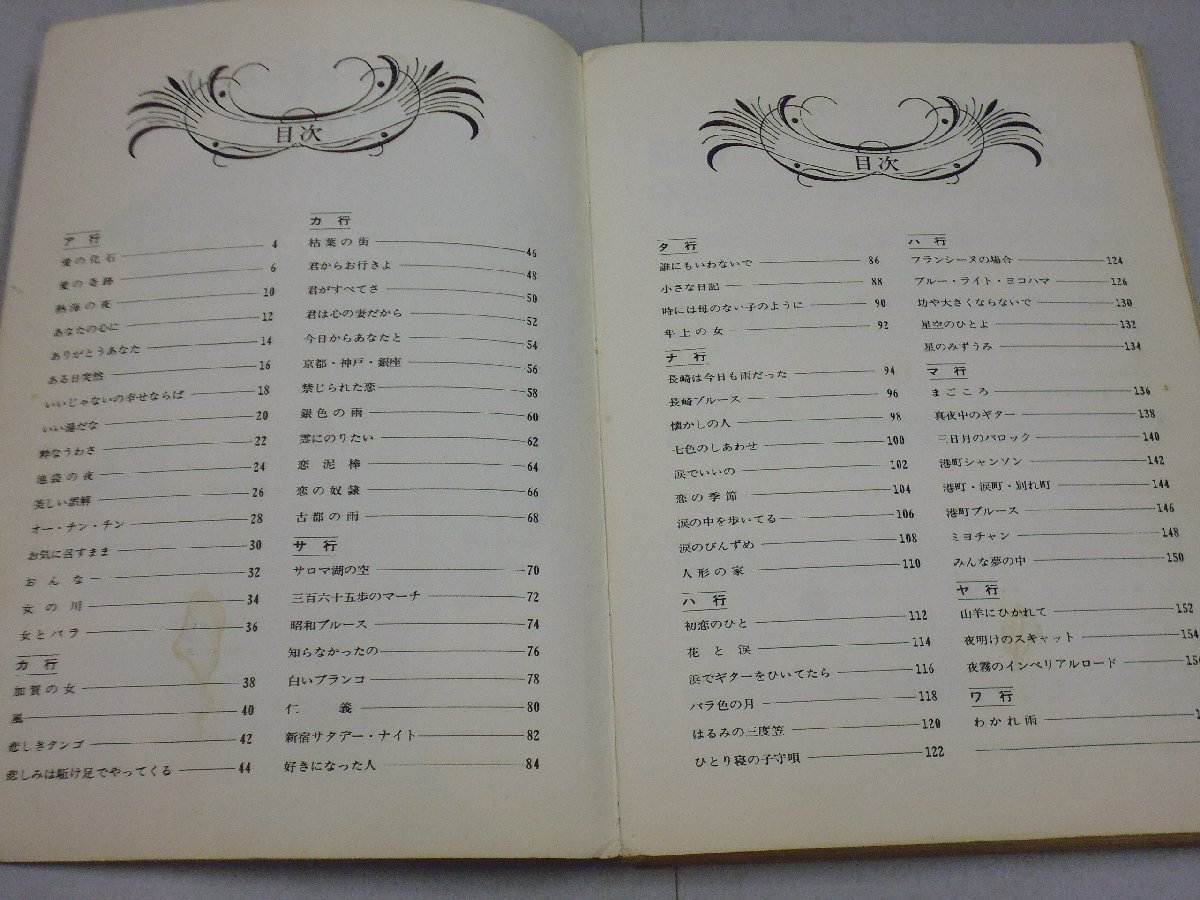 目次
ア行
愛の化石 4
愛の奇跡 6
熱海の夜 10
あなたの心に 12
ありがとうあなた 14
ある日突然 16
いいじゃないの幸せならば 18
いい湯だな 20
粋なうわさ 22
池袋の夜 24
美しい誤解 26
オー・チン・チン 28
お気に召すまま 30
おんな 32
女の川 34
女とバラ 36
カ行
加賀の女 38
風 40
悲しきタンゴ 42
悲しみは駆け足でやってくる 44
カ行
枯葉の街 46
君からお行きよ 48
君がすべてさ 50
君は心の妻だから 52
今日からあなたと 54
京都・神戸・銀座 56
禁じられた恋 58
銀色の雨 60
雲にのりたい 62
恋泥棒 64
恋の奴隷 66
古都の雨 68
サ行
サロマ湖の空 70
三百六十五歩のマーチ 72
昭和ブルース 74
知らなかったの 76
白いブランコ 78
仁義 80
新宿サタデー・ナイト 82
好きになった人 84
目次
タ行
誰にもいわないで 86
小さな日記 88
時には母のない子のように 90
年上の女 92
ナ行
長崎は今日も雨だった 94
長崎ブルース 96
懐かしの人 98
七色のしあわせ 100
涙でいいの 102
恋の季節 104
涙の中を歩いてる 106
涙のびんずめ 108
人形の家 110
ハ行
初恋のひと 112
花と涙 114
浜でギターをひいてたら 116
バラ色の月 118
はるみの三度笠 120
ひとり寝の子守唄 122
ハ行
フランシーヌの場合 124
ブルー・ライト・ヨコハマ 126
坊や大きくならないで 130
星空のひとよ 132
星のみずうみ 134
マ行
まごころ 136
真夜中のギター 138
三日月のバロック 140
港町シャンソン 142
港町・涙町・別れ町 144
港町ブルース 146
ミヨチャン 148
みんな夢の中 150
ヤ行
山羊にひかれて 152
夜明けのスキャット 154
夜霧のインペリアルロード 15
ワ行
わかれ雨